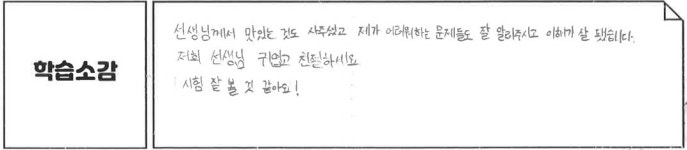 학습소감
선생님께서 맛있는 것도 사주셨고 제가 어려워하는 문제들도 잘 알려주시고 이해가 잘 됐습니다.
저희 선생님 귀엽고 친절하세요
시험 잘 볼 것 같아요!